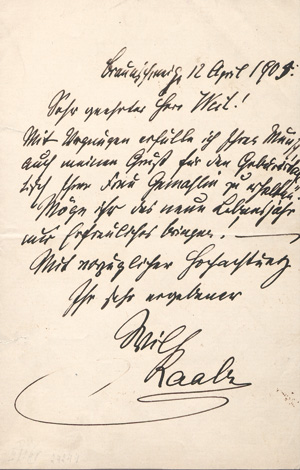 Braunschweig, 12 April 1905.
Sehr geehrter Herr Weil!
Mit Vergnügen erfülle ich Ihren Wunsch
auch meinen Gruß für den Geburtstags
tisch Ihrer Frau Gemahlin zu erhalten.
Möge ihr das neue Lebensjahr
nur Erfreuliches bringen.
Mit vorzüglicher Hochachtung
Ihr sehr ergebener
Wilh
Raabe